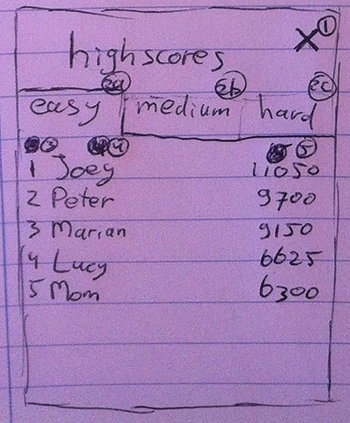 highscores X 1
2a 2b 2c
easy medium hard
3 4 5
1 Joey 11050
2 Peter 9700
3 Marian 9150
4 Lucy 6625
5 Mom 6300